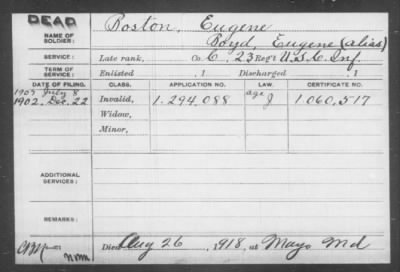 DEAD
NAME OF SOLDIER:
Boston, Eugene
Boyd, Eugene (alias)
SERVICE:
Late rank, Co. C, 23 Reg't U.S.C. Inf.
TERM OF SERVICE:
Enlisted , 1 Discharged , 1
DATE OF FILING. CLASS. APPLICATION NO. LAW. CERTIFICATE NO.
1907 July 8
1902, Dec. 22 Invalid, 1.294.088 age J 1.060.517
Widow,
Minor,
ADDITIONAL SERVICES:
REMARKS:
Died Aug 26, 1918, at Mayo Md